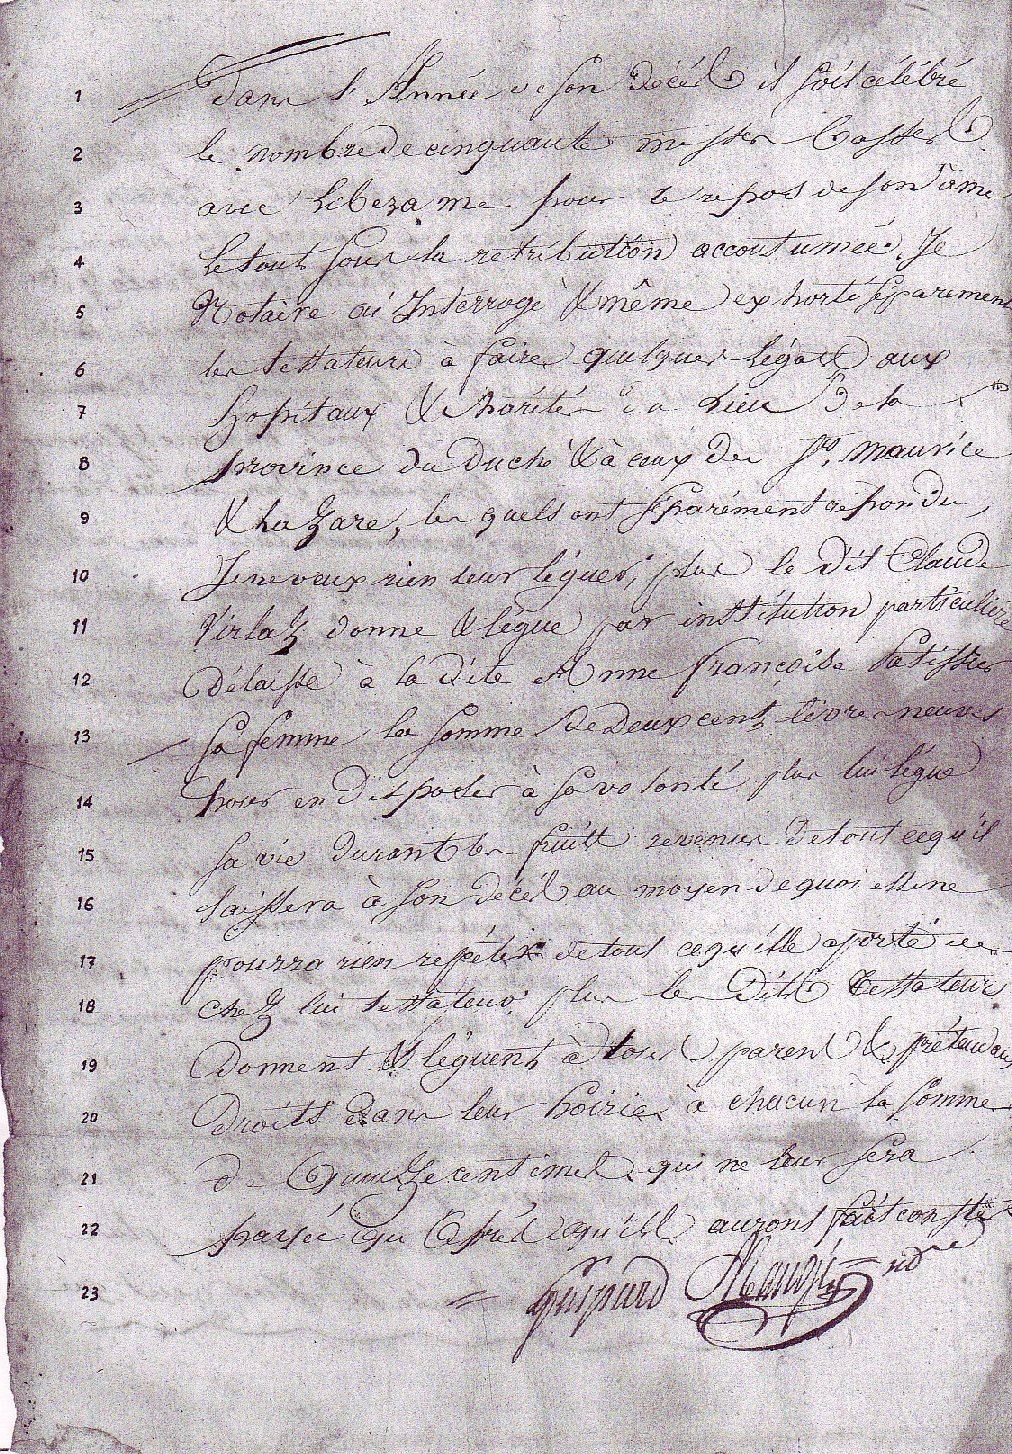 1 dans l'Année de son décéd il soit célébré
2 le nombre de cinquante messes basses
3 avec Libera me pour le repos de son âme
4 Le tout sous la retribution accoutumée. Je
5 Notaire ai Interrogé & même exhorté sépparement
6 les testateurs à faire quelques légats aux
7 hopitaux & charités du Lieu de la
8 province du Duché & à ceux des Sts. Maurice
9 & Lazare, les quels ont sépparément repondu,
10 Je ne veux rien leur léguer; plus le dit Claude
11 Virlaz donne & légue par institution particulière
12 délaisse à la dite Anne françoise Patissier
13 sa femme la somme de deux cent livres neuves
14 pour en disposer à sa volonté plus lui légue
15 sa vie durant les fruitt revenus de tout ce qu'il
16 laissera à son décéd au moyen de quoi elle ne
17 pourra rien répéter de tout ce qu'elle a porté
18 chez lui testateur. plus les ditts testateurs
19 donnent & léguent à tous parens & prétendans
20 droits dans leur hoiries à chacun la somme
21 de Quinze centimes qui ne leur sera
22 payée qu'après qu'ill auront fait
23 Gaspard